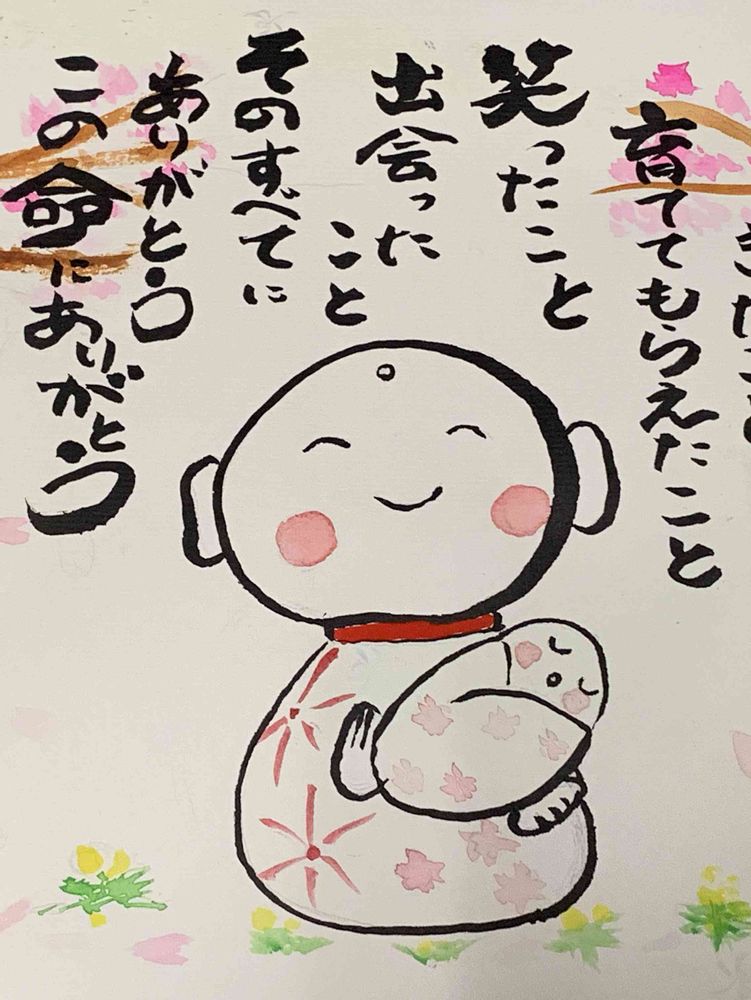 育ててもらえたこと
笑ったこと
出会った
こと
そのすべてに
ありがとう
この命にありがとう